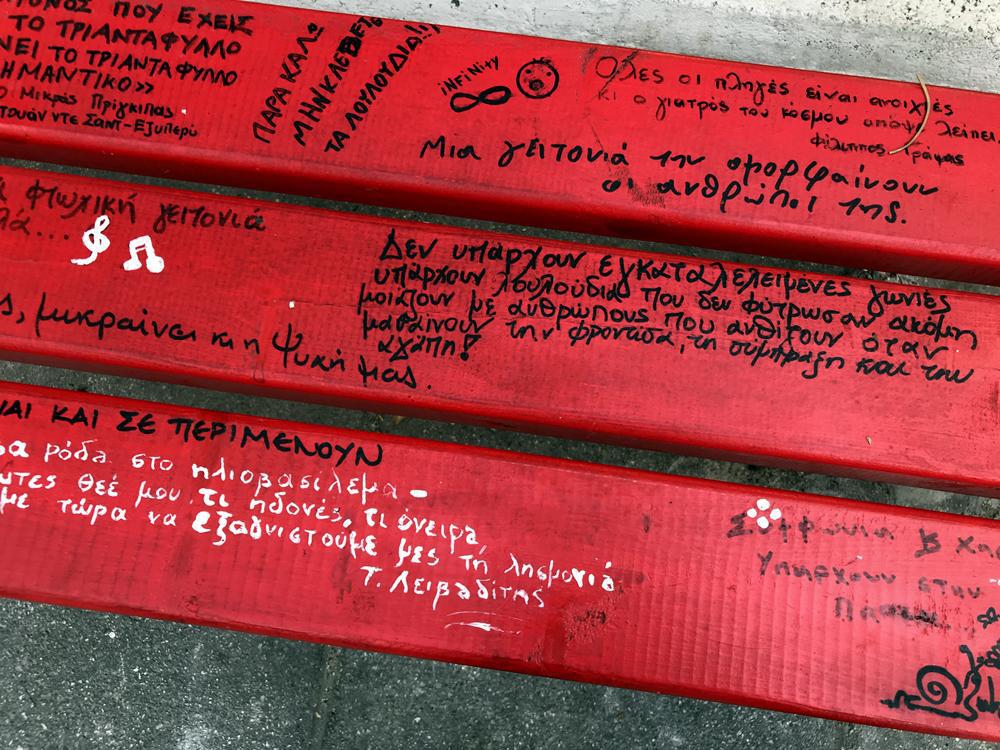 ΠΟΥ ΕΧΕΙΣ
ΤΟ ΤΡΙΑΝΤΑΦΥΛΛΟ
ΝΕΙ ΤΟ ΤΡΙΑΝΤΑΦΥΛΛΟ
ΗΜΑΝΤΙΚΟ>>
Ο Μικρός Πρίγκιπας
τουάν ντε Σαντ-Εξυπερύ
ΠΑΡΑΚΑΛΩ
ΜΗΝ ΚΛΕΒΕΤΕ
ΤΑ ΛΟΥΛΟΥΔΙΑ!!
iNFiNity
Όλες οι πληγές είναι ανοιχτές
κι ο γιατρός του κόσμου απόψε λείπει
Φίλιππος Γράψας
Μια γειτονιά την ομορφαίνουν
οι ανθρώποι της.
φτωχική γειτονιά
λά...
ς, μικραίνει κι η ψυχή μας.
Δεν υπάρχουν εγκαταλελειμένες γωνιές
υπάρχουν λουλούδια που δεν φύτρωσαν ακόμη
μοιάζουν με ανθρώπους που ανθίζουν όταν
μαθαίνουν την φροντίδα, τη σύμπραξη και την
αγάπη!
ΝΑΙ ΚΑΙ ΣΕ ΠΕΡΙΜΕΝΟΥΝ
ρόδα στο ηλιοβασίλεμα -
ωτες θεέ μου, τι ηδονές, τι όνειρα,
με τώρα να εξαγνιστούμε μες τη λησμονιά
Τ. Λειβαδίτης
Υπάρχουν στην